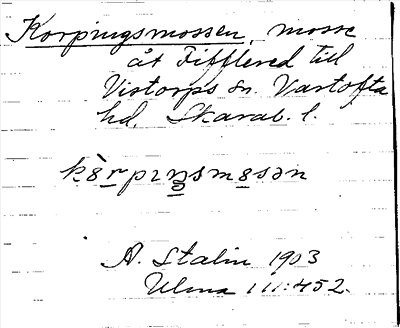 Korpingsmossen, mosse
åt Fifflered till
Vistorps sn. Vartofta
hd. Skarab. l.
A. Stalin 1903
Ulma 111:452.